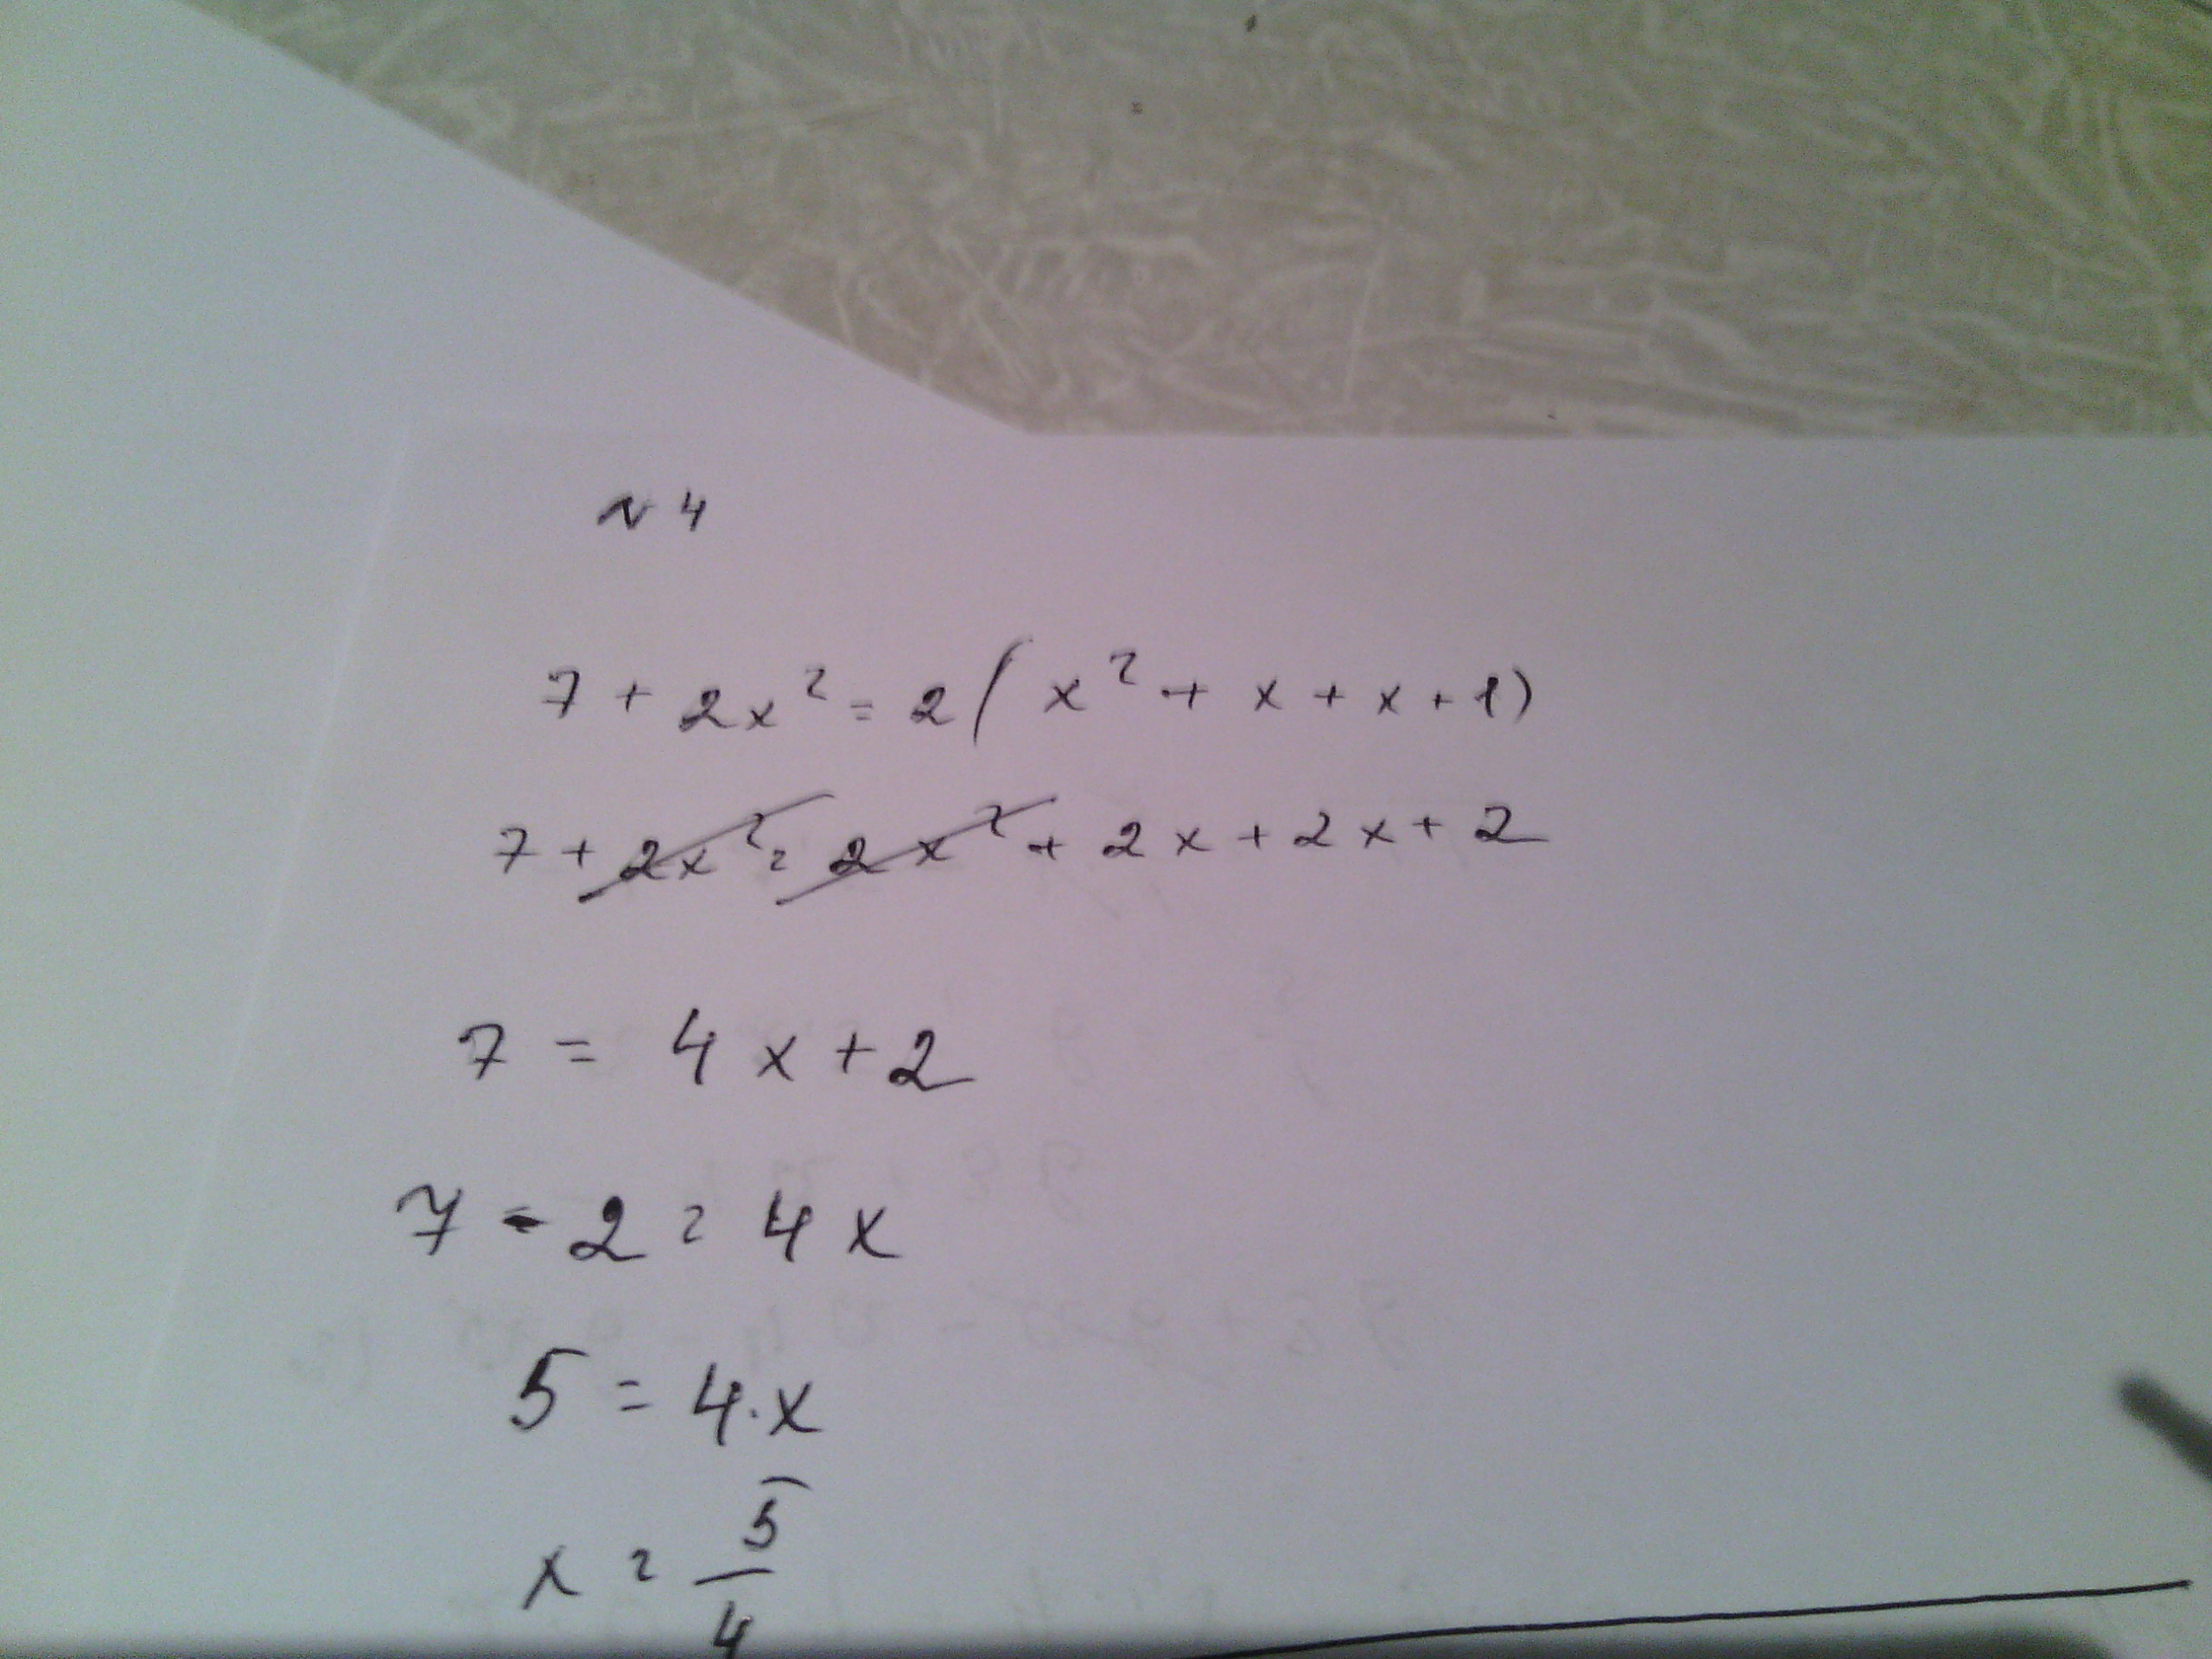 N 4
7 + 2x² = 2(x² + x + x + 1)
7 + 2x² = 2x² + 2x + 2x + 2
7 = 4x + 2
7 - 2 = 4x
5 = 4·x
x = 5/4